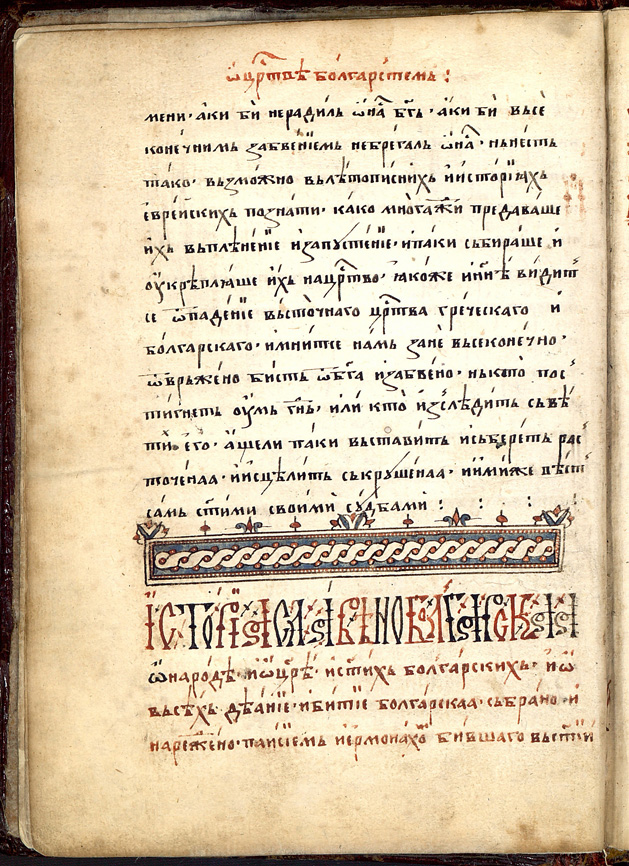 ѡ҆ црⷭ҇твѣ болгарстемь :
мени · а҆ки би нерадиль ѡ҆наⷯ бг҃ъ · а҆ки би̑ всѐ
конечнимь забвенїемь небрегаль ѡ҆наⷯ · нь нѣсть
тако · възможно вълѣтописнихь и҆и҆сторїахь
е҆врейскихь познати · како многажⷣи предаваше
и҆хь въплѣненїе и҆запꙋстенїе · и҆паки събираше и҆
ᲂу҆крѣплꙗше и҆хь нацрⷭ҇тво · ꙗ҆коже и҆нн҃ѣ видитⸯ
се ѿпаденїе въсточнаго црⷭ҇тва греческаго и҆
болгарскаго · и҆мнитсе намь занѐ въсеконечно ·
ѿвръжено бисть ѿбг҃а и҆забвено · нькто̀ пос
тигнетъ ᲂу҆мь гⷭ҇нь · или кто̀ и҆зслѣдить съвѣ
ти е҆го · а҆щели паки въставить и҆съберетъ рас
точенаа · и҆и҆сцѣлить съкрꙋшенаа · и҆и҆миже вѣсть
самь ст҃ими своими сꙋдбами : : :
И҆сторїа славѣноболгарскаа
ѡ҆народѣ · и҆ѡ҆црⷭ҇ѣ · и҆ст҃ихъ болгарскихъ · и҆ѡ҆
въсѣхъ дѣанїе · и҆битїе болгарскаа · събрано · и҆
нареждено · паисїемь і҆ермонахоⷨ бившаго въст҃ѣй